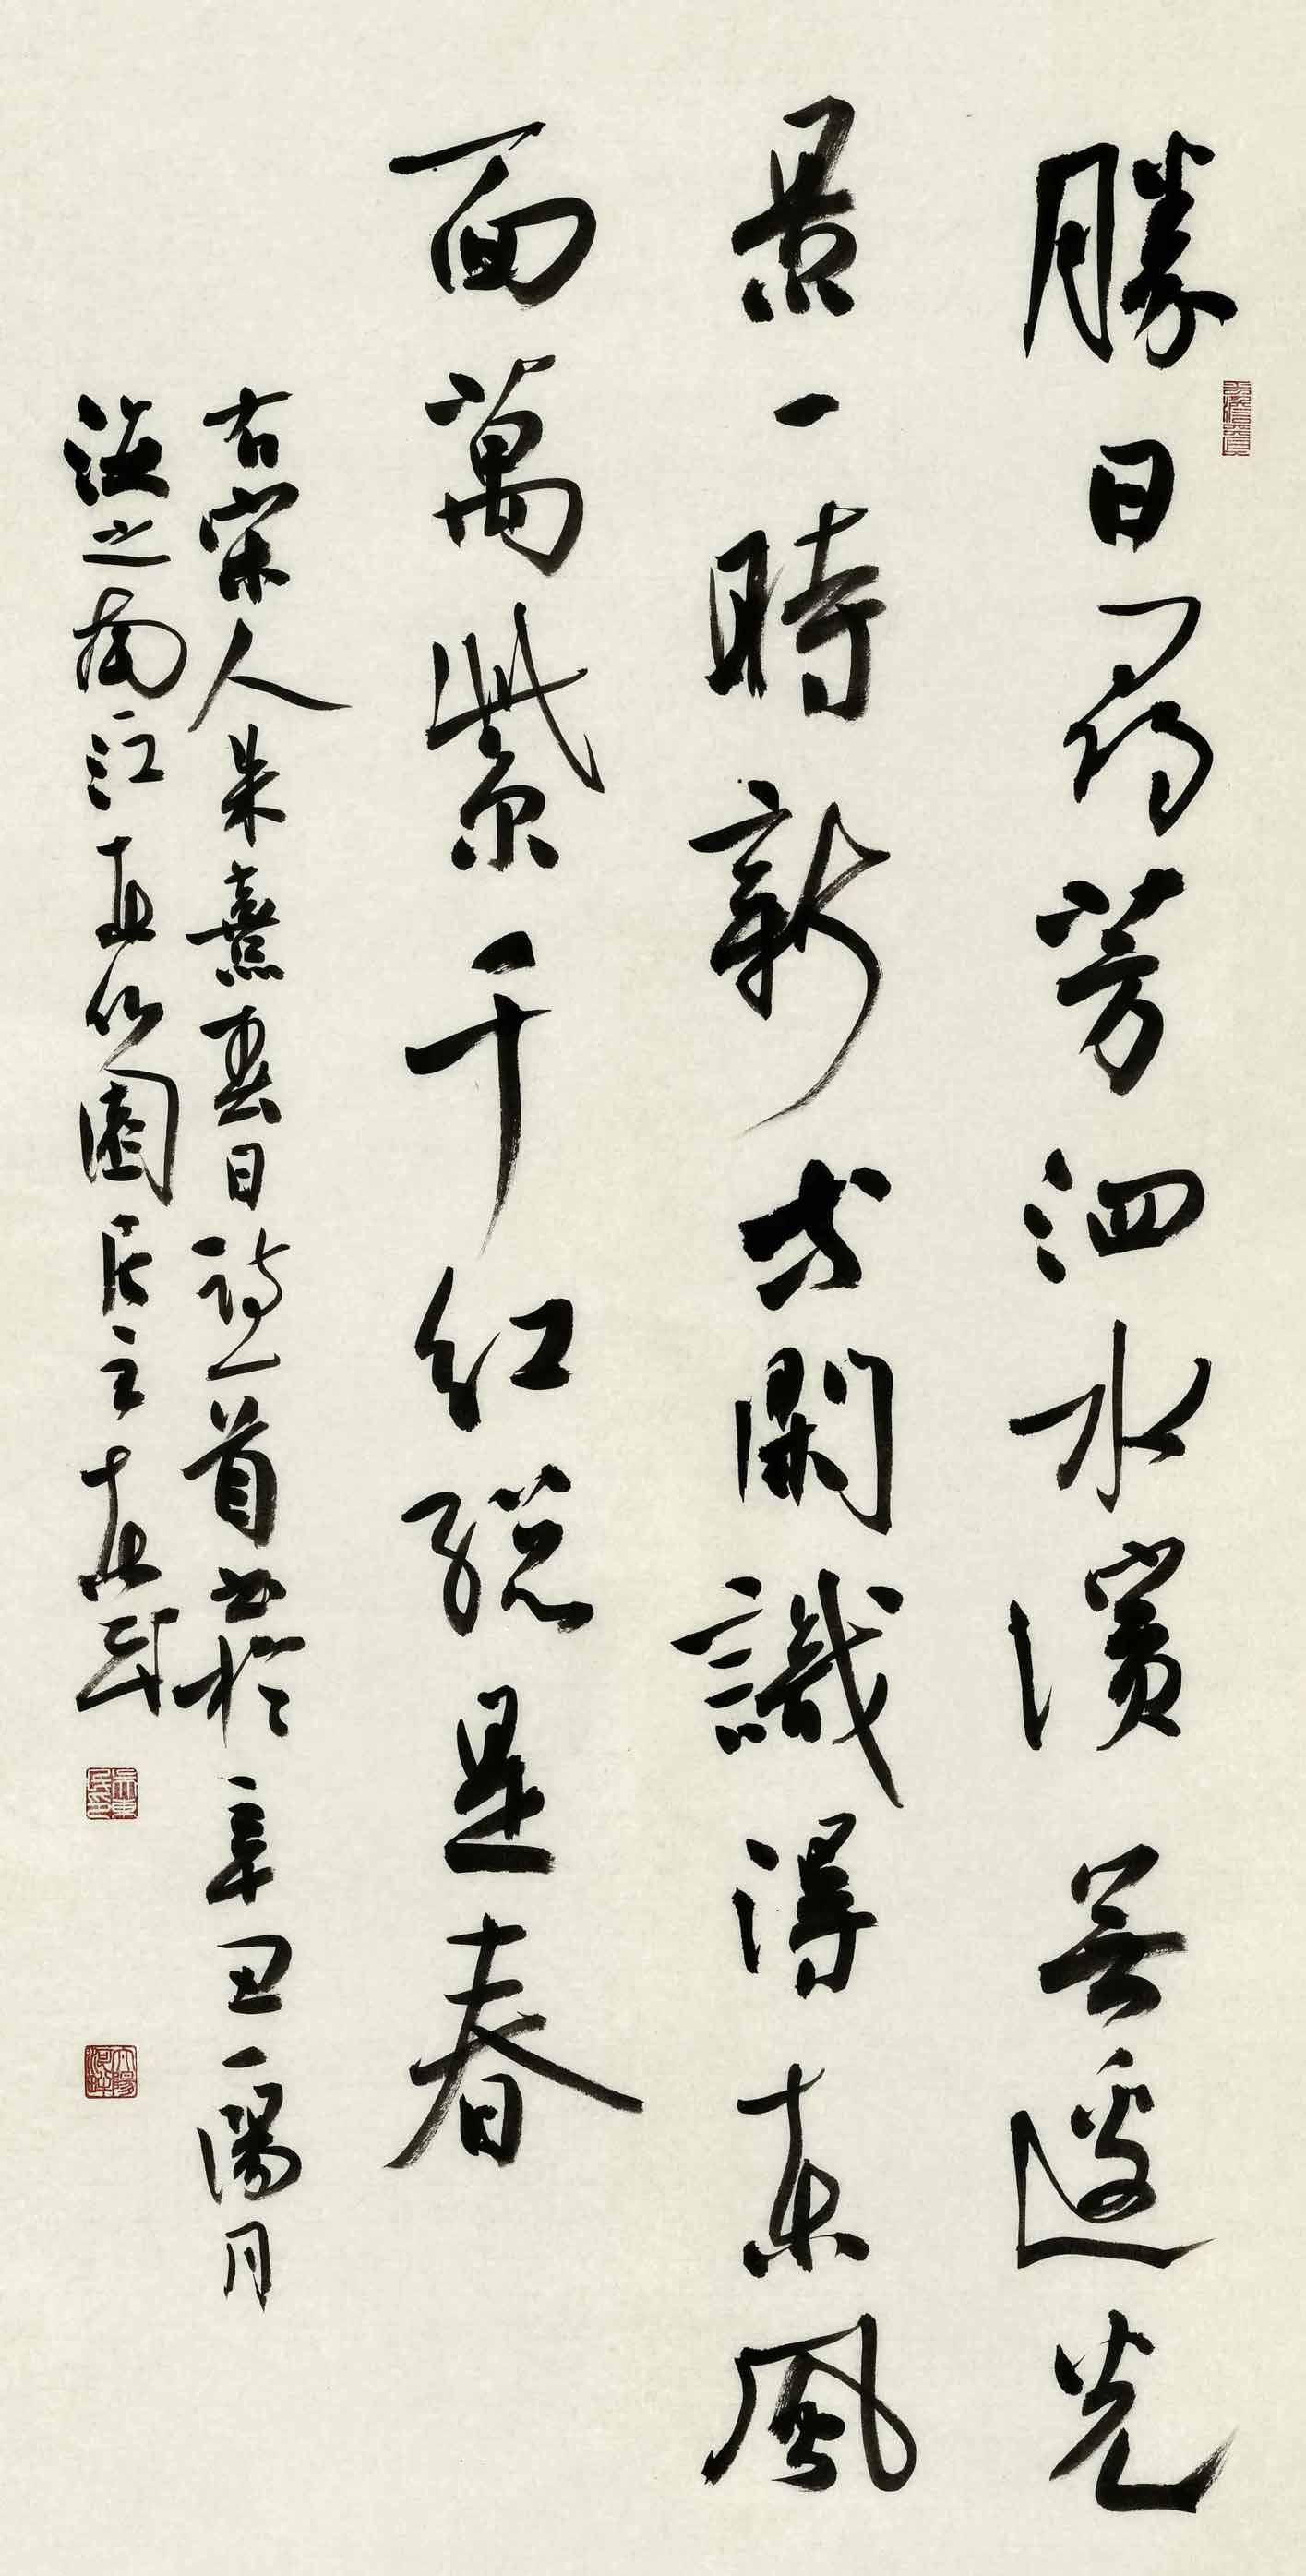 勝日尋芳泗水濱無邊光
景一時新等閑識得東風
面萬紫千红總是春
右宋人朱熹春日詩一首書於辛丑一陽月
海之南江東竹園居主